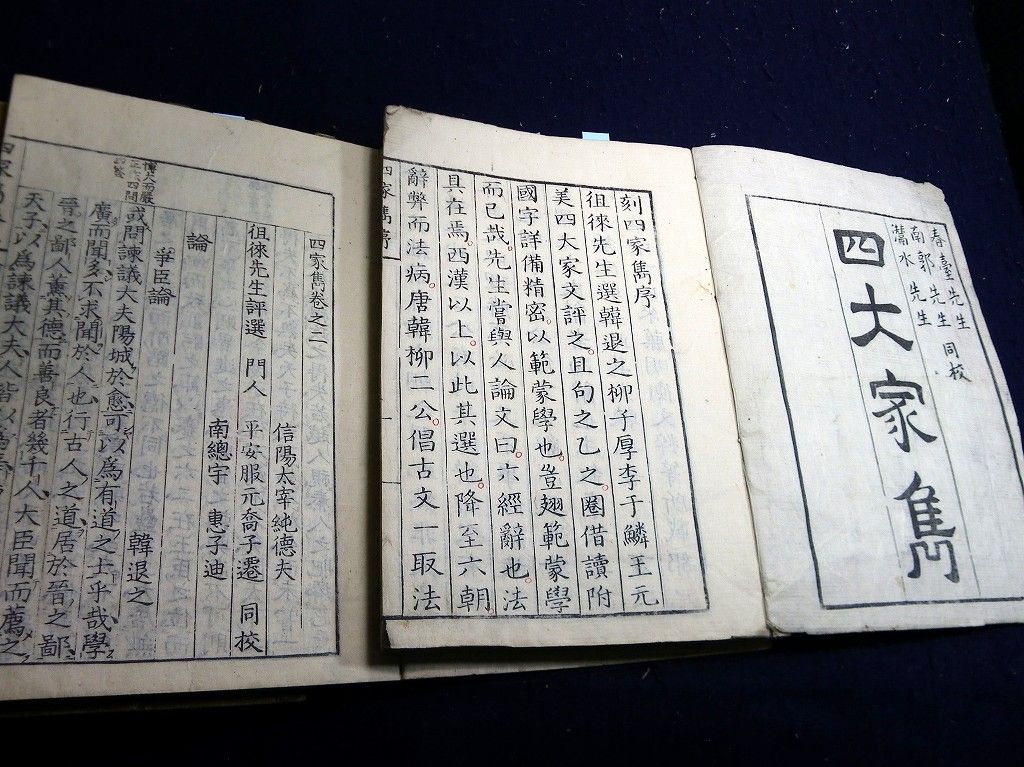 春臺先生
南郭先生 同校
灊水先生
四大家雋
刻四家雋序
徂徠先生選韓退之柳子厚李于鱗王元
美四大家文評之且句之乙之圈借讀附
國字詳備精密以範蒙學也豈翅範蒙學
而已哉先生嘗與人論文曰六經辭也法
具在焉西漢以上以此其選也降至六朝
辭弊而法病唐韓柳二公倡古文一取法
四家雋序
四家雋卷之二
信陽太宰純德夫
徂徠先生評選 門人 平安服元喬子遷 同校
南總宇惠子迪
論
爭臣論 韓退之
或問諫議大夫陽城於愈可以爲有道之士乎哉學
廣而聞多不求聞於人也行古人之道居於晉之鄙
晉之鄙人薰其德而善良者幾千人大臣聞而薦之
天子以爲諫議大夫人皆以爲